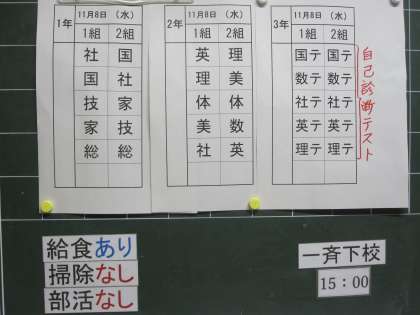 1年 11月8日（水）
1組 2組
社 国
国 社
技 家
家 技
総 総
2年 11月8日（水）
1組 2組
英 理
理 美
体 体
美 数
社 英
3年 11月8日（水）
1組 2組
国テ 国テ
数テ 数テ
社テ 社テ
英テ 英テ
理テ 理テ
自己診断テスト
給食あり
掃除なし
部活なし
一斉下校
15：00